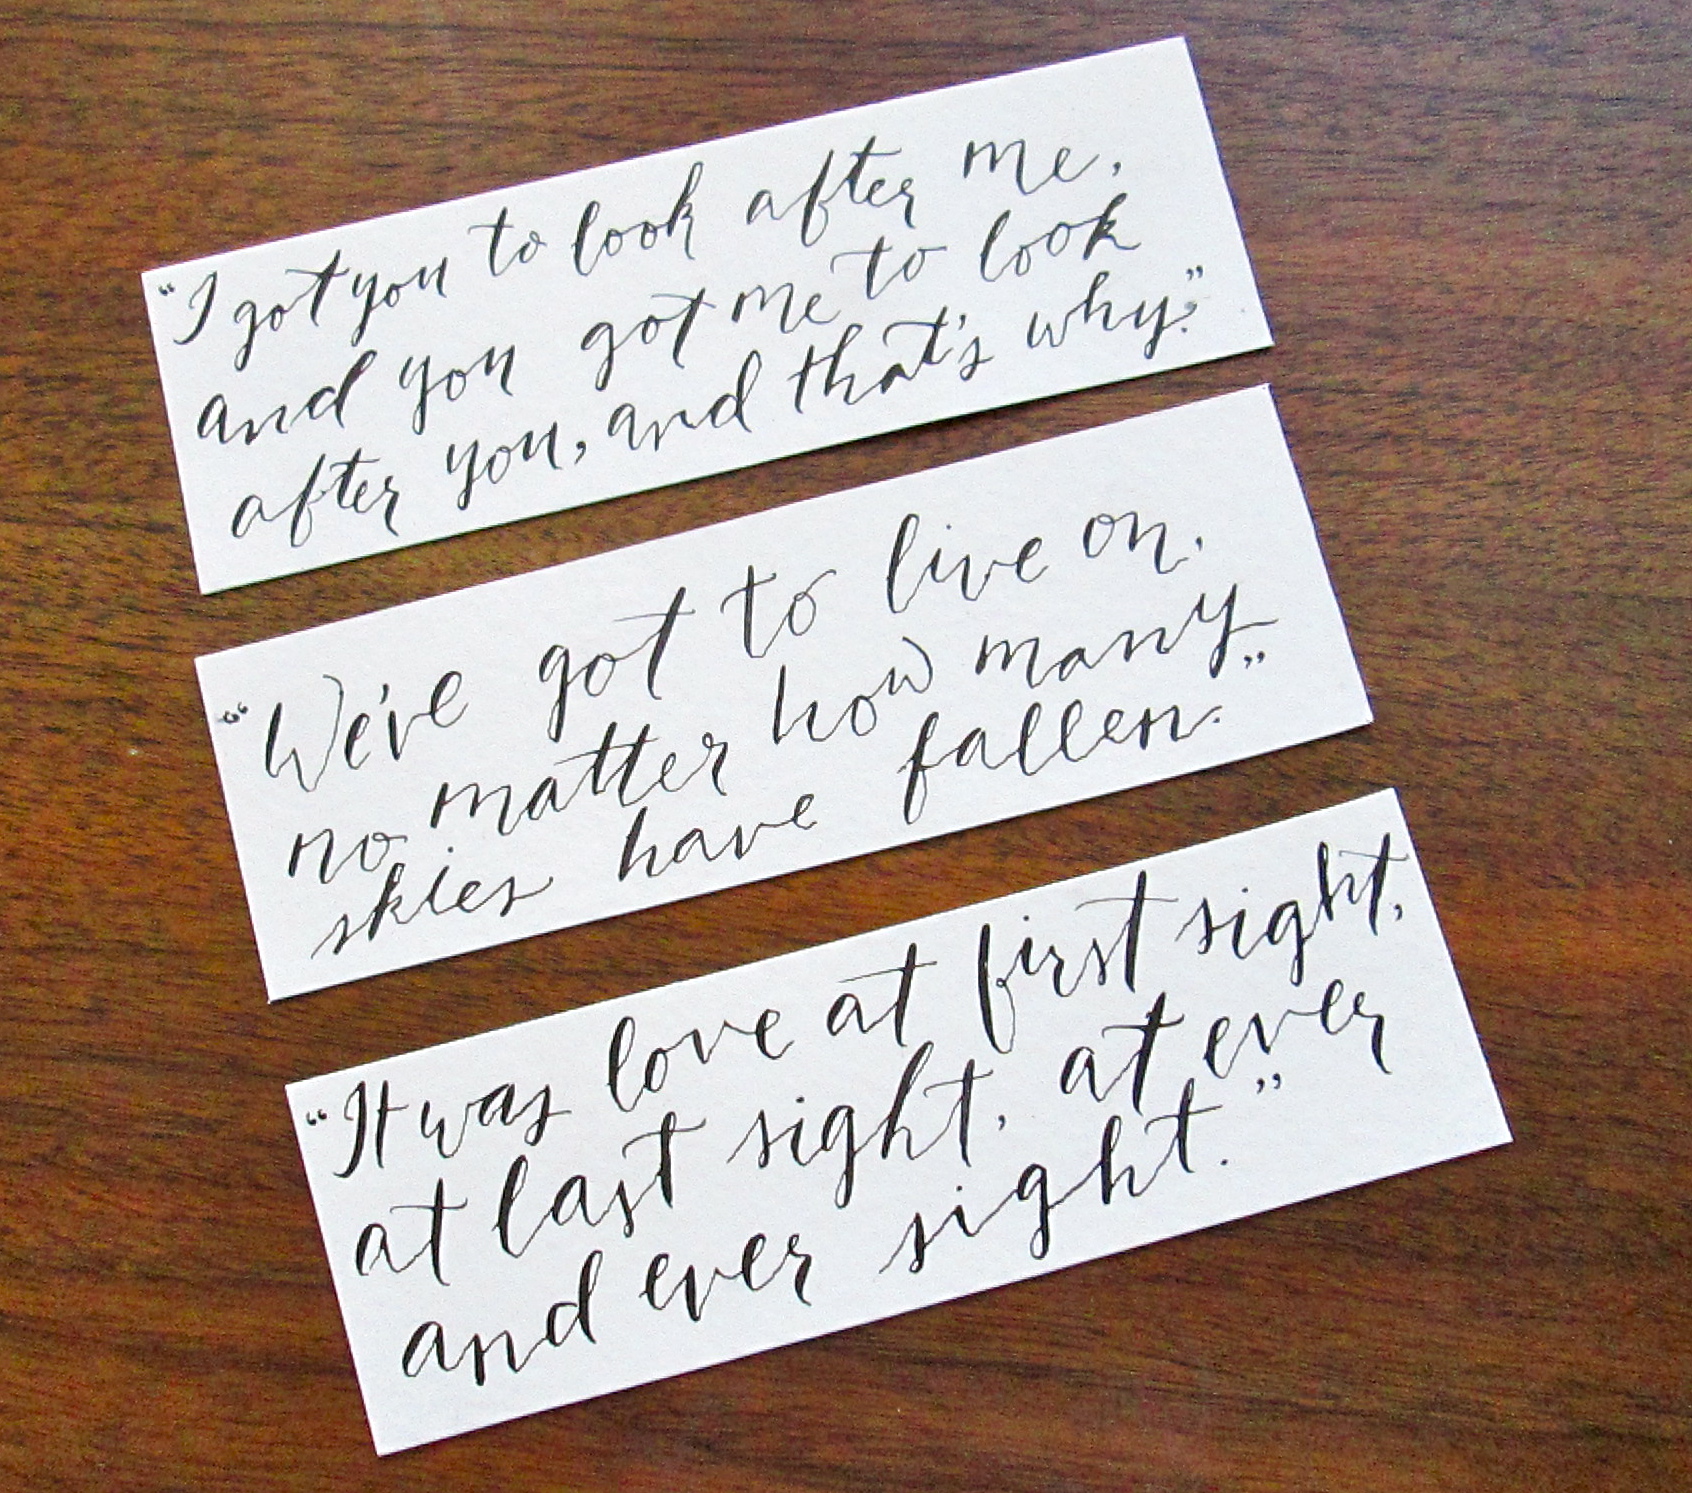 “I got you to look after me,
and you got me to look
after you, and that's why.”
“We've got to live on,
no matter how many
skies have fallen.”
“It was love at first sight,
at last sight, at ever
and ever sight.”